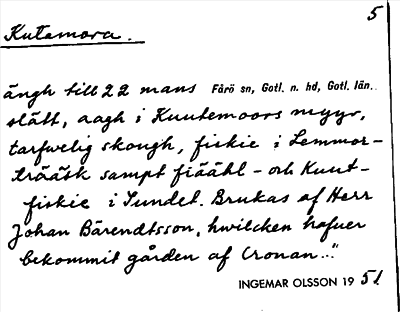 5
Kutamora.
ängh till 22 mans Fårö sn, Gotl. n. hd, Gotl. län.
slätt, aagh i Kuutemoors myyr,
tarfwelig skough, fiskie i Lemmor-
träätk sampt fiäähl - och Kuut-
fiskie i Sundet. Brukas af Herr
Johan Bärendtsson, hwilcken hafuer
bekommit gården af Cronan..."
INGEMAR OLSSON 19 51